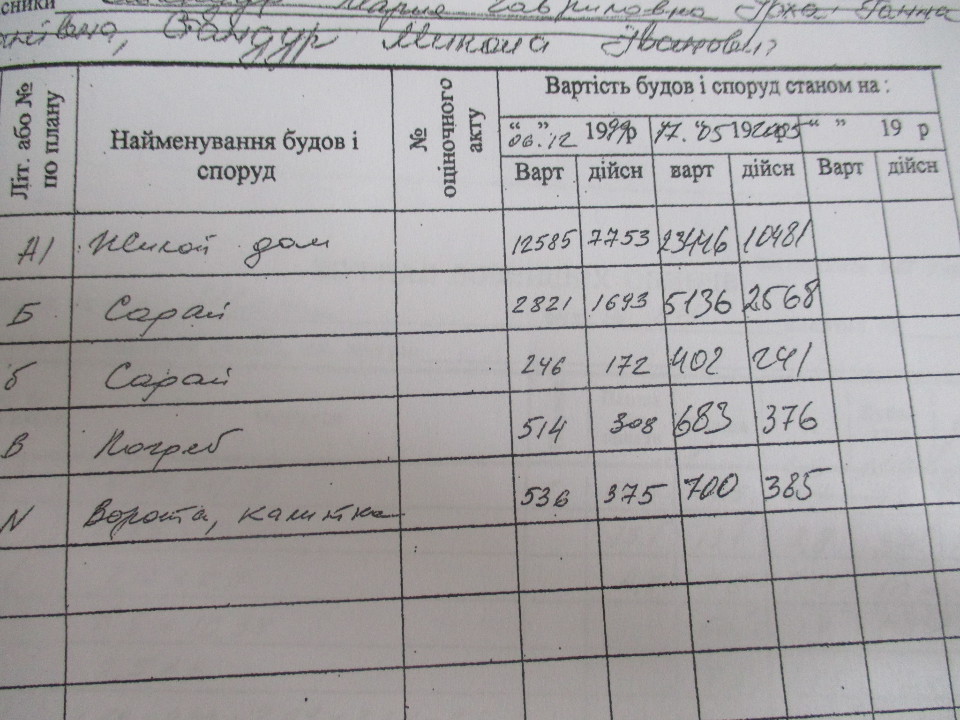 сники Мария Гавриловна Ганна
Бандур Микола Іванович
Літ. або № по плану
Найменування будов і споруд
№ оціночного акту
Вартість будов і споруд станом на :
“ ” 06.12 1999р 17. 05 2005 “ ” 19 р
Варт дійсн варт дійсн Варт дійсн
А1 Жилой дом 12585 7753 23446 10481
Б Сарай 2821 1693 5136 2568
б Сарай 246 172 402 241
В Погреб 514 308 683 376
N Ворота, калитка 536 375 700 385